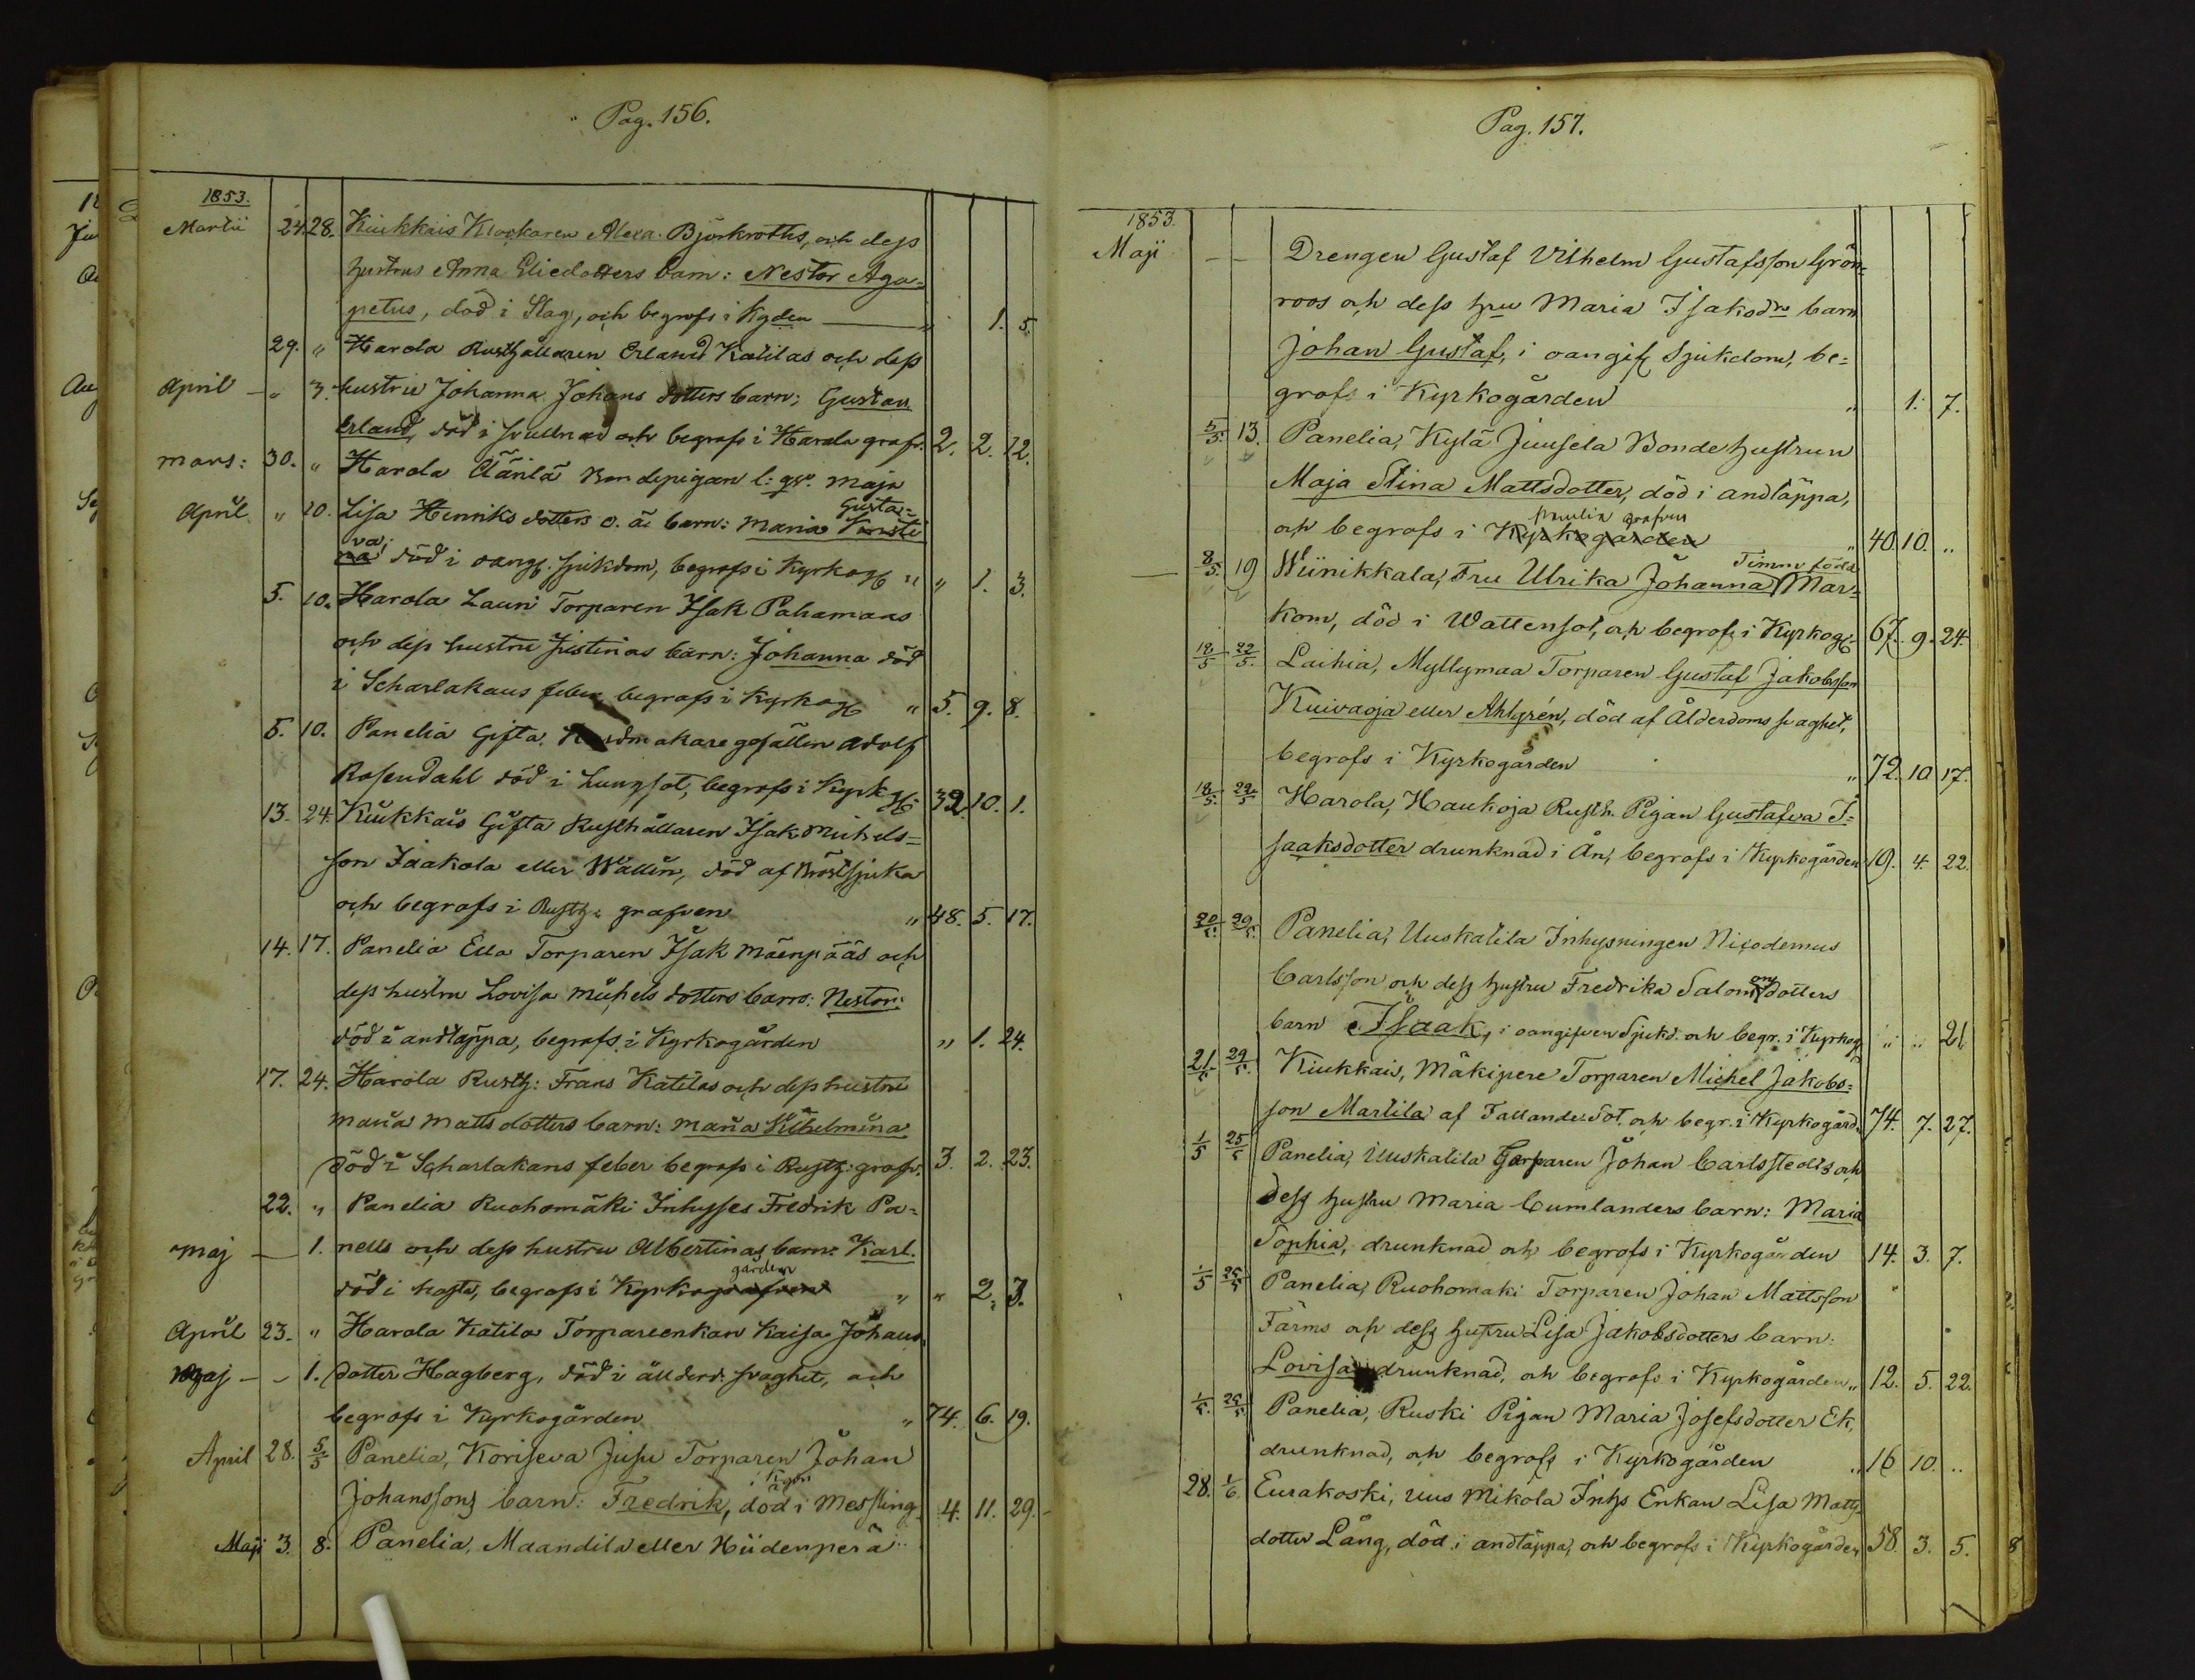 Pag. 156.
1853.
Martii 24. 28. Kiukkais Klockaren Alexa. Björkroths, och dess
hustrus Anna Eliedotters barn: Nestor Aga-
petus, död i Slag, och begrofs i Kgden " 1. 5.
29. " Harola Rusthållaren Erland Katilas och dess
April - " 3. hustru Johanna Johans dotters barn; Gustav
Erland, död i svullnad och begrofs i Harola grafv. 2. 2. 12.
Mars: 30. " Harola Äänlä Bondepigan l: qv. Maja
April " 10. Lisa Henriks dotters o. ä. barn: Maria Kristi Gusta-
na va; död i oangf. sjukdom, begrofs i Kyrkog " " 1. 3.
5. 10. Harola Lauri Torparen Isak Pahamaas
och dess hustru Justinas barn: Johanna död
i Scharlakans feber begrofs i Kyrkog " 5. 9. 8.
5. 10. Panelia Gifta. makare gesällen Adolf
Rosendahl död i Lungsot, begrofs i Kyrkg: 32. 10. 1.
13. 24. Kiukkais Gifta Rusthållaren Isak Michels-
son Jaakola eller Wallin, död af Bröstsjuka
och begrofs i Rusth: grafven " 48. 5. 17.
14. 17. Panelia Eila Torparen Isak Mäenpääs och
dess hustru Lovisa Michels dotters barn: Nestor:
död i andtäppa, begrofs i Kyrkogården " 1. 24.
17. 24. Harola Rusth: Frans Katilas och dess hustru
Maria Matts dotters barn: Maria Vilhelmina
död i Scharlakans feber begrofs i Rusth: grafv. 3. 2. 23.
22. " Panelia Ruohomäki Inhyses Fredrik Pa-
Maj - 1. nells och dess hustru Albertinas barn: Karl.
död i hosta, begrofs i Kyrkografven gården " " 2. 3.
April 23. " Harola Katila Torpareenkan Kaisa Johans
Maj - - 1. dotter Hagberg, död i ålderd. svaghet, och
begrofs i Kyrkogården " 74. 6. 19.
April 28. 5/5 Panelia, Koriseva Jusu Torparen Johan
Johanssons barn: Fredrik, död i Messling. Kgdn 4. 11. 29.
Maji 3. 8. Panelia, Maandila eller Hiidenperä
Pag. 157.
1853.
Maji - - Drengen Gustaf Vilhelm Gustafsson Grön-
roos och dess hru Maria Isaksdrs barn
Johan Gustaf, i oangif. Sjukdom, be-
grofs i Kyrkogården " 1. 7.
5/5. 13. Panelia, Kylä Juusela Bonde hustrun
Maja Stina Mattsdotter, död i andtäppa,
och begrofs i Kyrkogården familie grafven " 40. 10. "
8/5. 19 Wiinikkala, Fru Ulrika Johanna Timm född Mar-
kom, död i Wattensot, och begrofs i Kyrkog 67. 9. 24.
12/5 22/5. Laihia, Myllymaa Torparen Gustaf Jakobsson
Kuivaoja eller Ahlgrén, död af Ålderdoms svaghet,
begrofs i Kyrkogården " 72. 10. 17.
18/5. 22/5 Harola, Haukoja Rusth. Pigan Gustafva I-
saaksdotter drunknad i Ån, begrofs i Kyrkogården 19. 4. 22.
20/5. 29/5. Panelia, Uuskatila Inhysningen Nicodemus
Carlsson och dess hustru Fredrika Salomonsdotters
barn Isaak, i oangifven Sjukd. och begr. i Kyrkog. " " 21
21/5 29/5. Kiukkais, Mäkipere Torparen Michel Jakobs-
son Martila af Fallande Sot. och begr. i Kyrkogård. 74. 7. 27.
1/5 25/5 Panelia, Uuskatila Torparen Johan Carlstedts och
dess hustru Maria Cumlanders barn: Maria
Sophia, drunknad och begrofs i Kyrkogården 14. 3. 7.
1/5 25/5 Panelia, Ruohomaki Torparen Johan Mattsson
Färms och dess hustru Lisa Jakobsdotters barn:
Lovisa drunknad, och begrofs i Kyrkogården " 12. 5. 22.
1/5. 25/5. Panelia, Ruski Pigan Maria Josefsdotter Ek,
drunknad, och begrofs i Kyrkogården " 16 10. "
28. 1/6. Eurakoski, Uus Mikola Inhs Enkan Lisa Matts
dotter Lång, död i andtäppa, och begrofs i Kyrkogården 58. 3. 5.